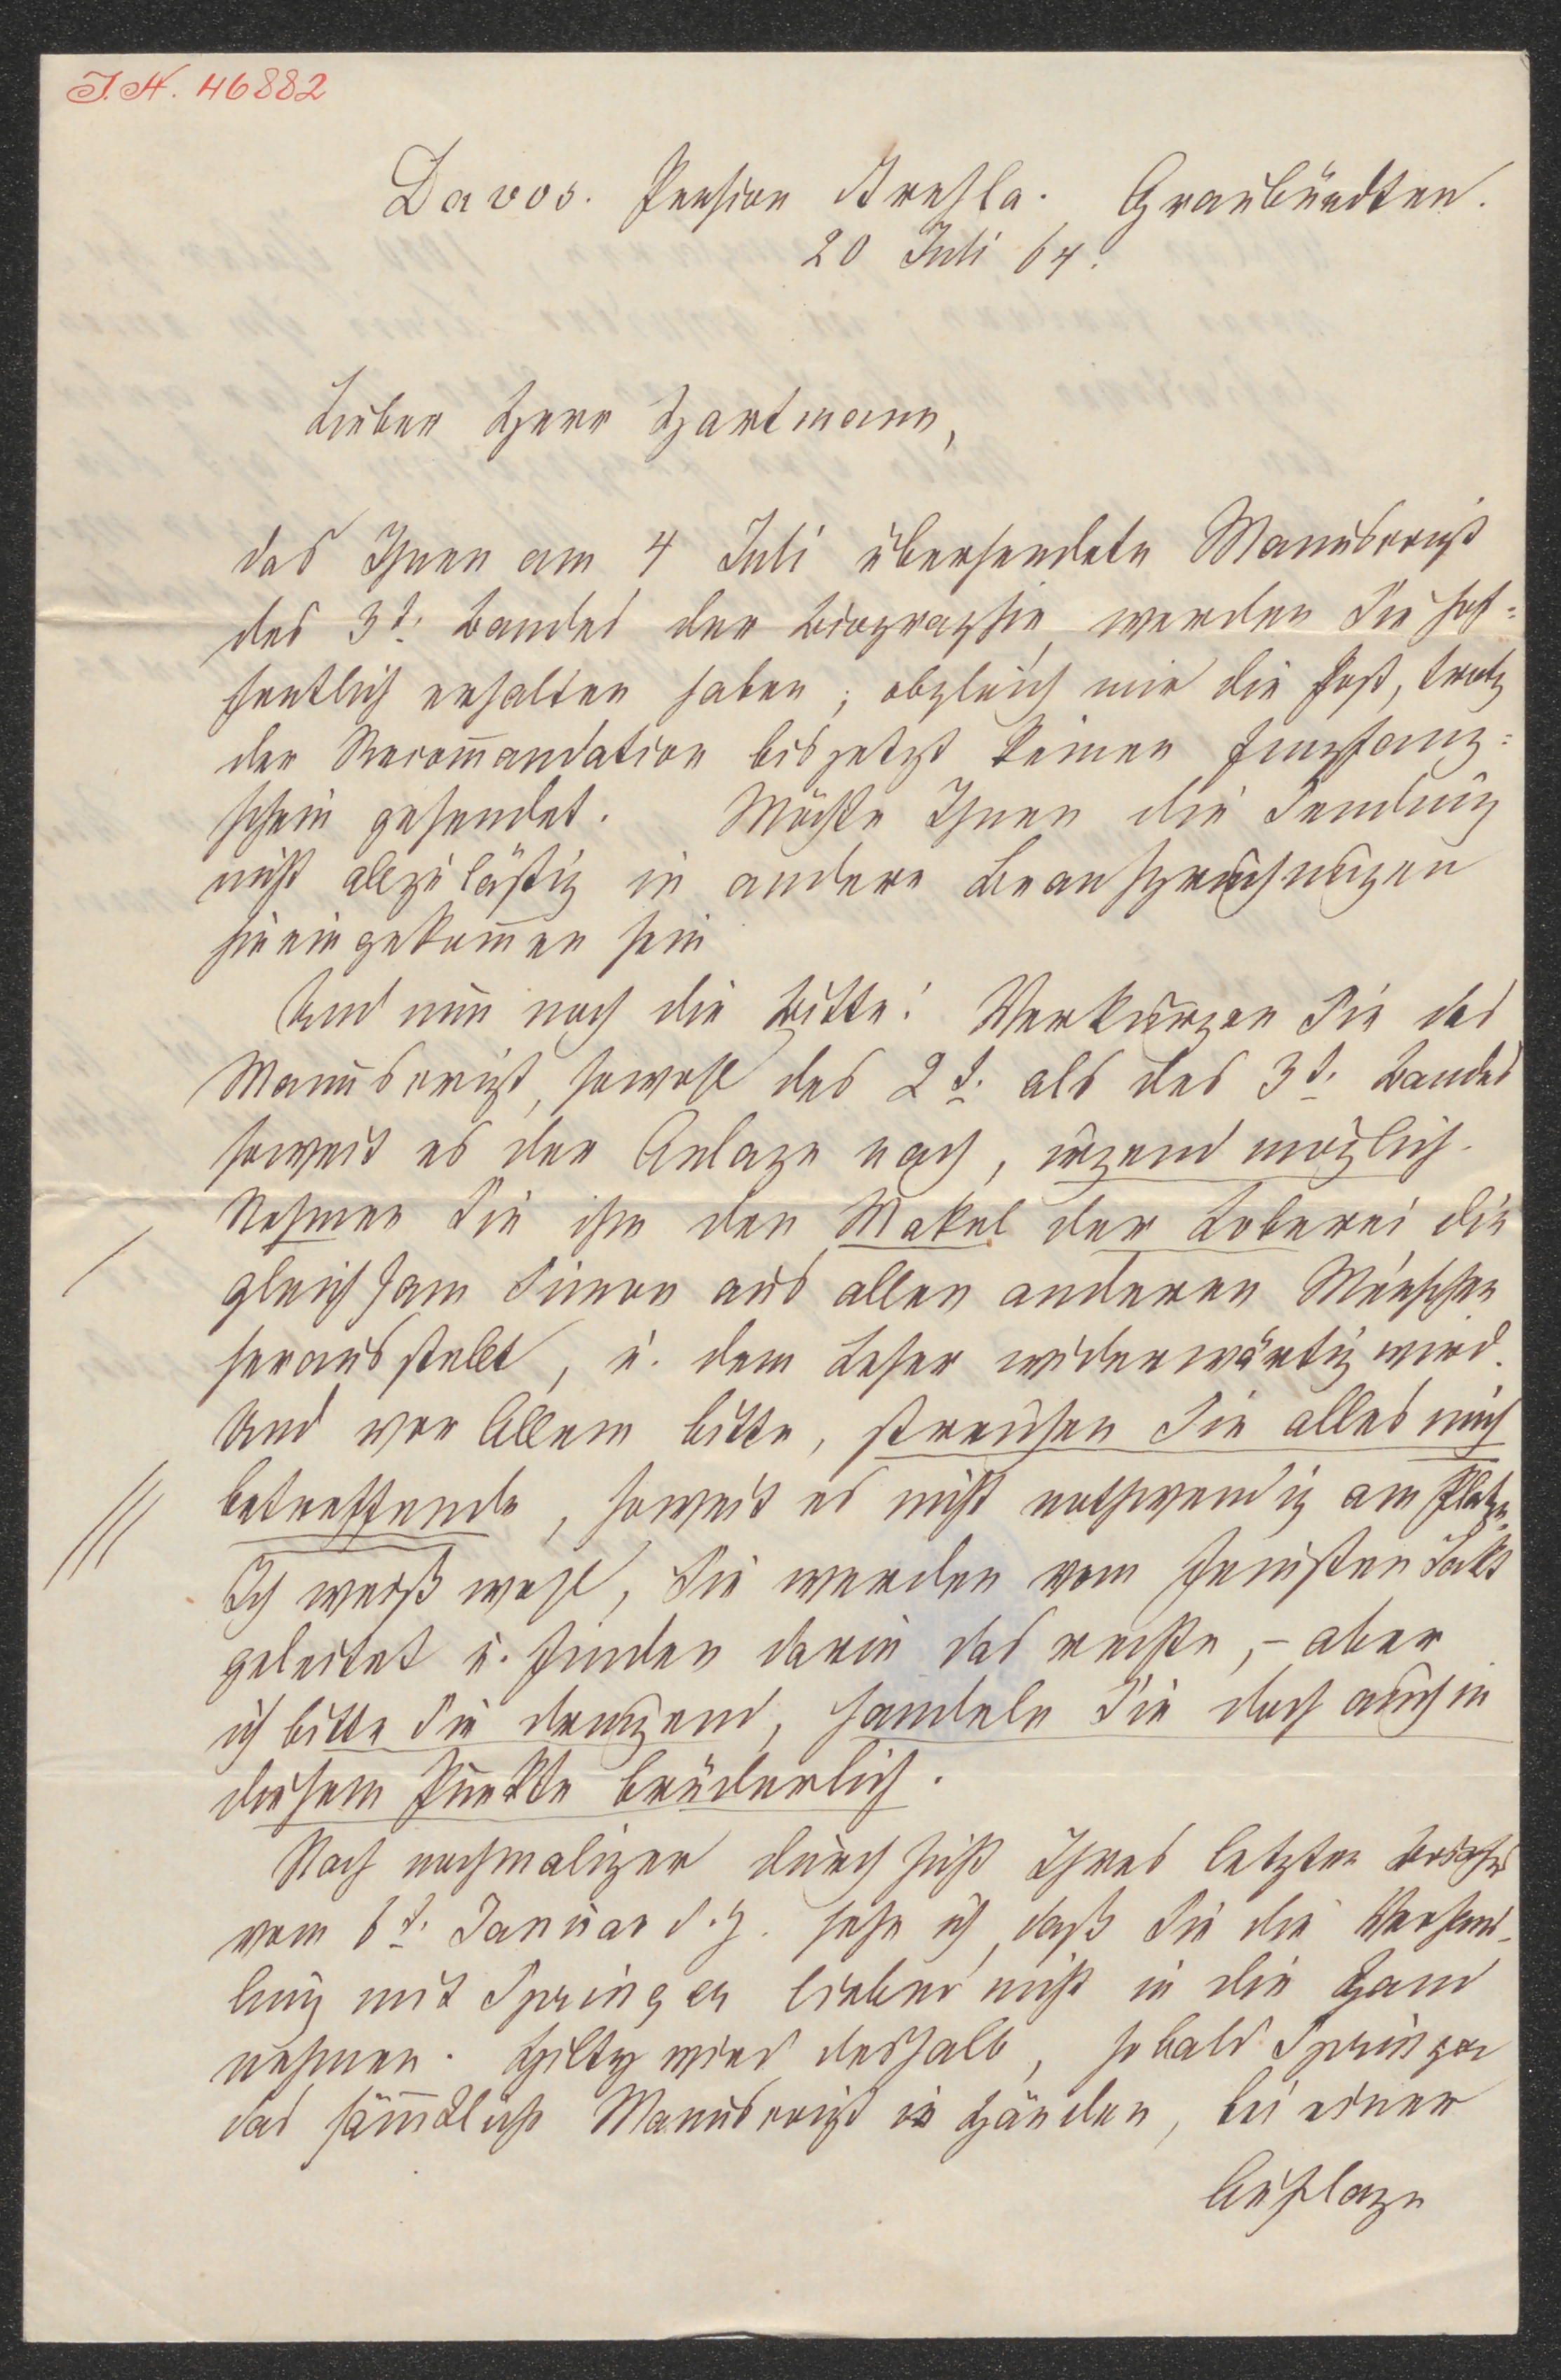 I.N. 46882
Davos. Pension Strehla. Graubündten.
20 Juli 64.
Lieber Herr Hartmann,
das Ihnen am 4 Juli übersendete Manuscript
des 3t. Bandes der Biographie, werden Sie hof=
fentlich erhalten haben; obgleich mir die Post, trotz
der Recom̅andation bis jetzt keinen Empfang=
schein gesendet. Möchte Ihnen die Sendung
nicht allzu lästig in andere Beanspruchungen
hineingekom̅en sein
Und nun noch die Bitte! Verkürzen Sie das
Manuscript, sowohl des 2t. als des 3t. Bandes
soweit es der Anlage nach, irgend möglich.
Nehmen Sie ihm den Makel der Loberei die
gleichsam Simon aus allen anderen Menschen
herausstellt, u. dem Leser widerwärtig wird.
Und vor Allem bitte, streichen Sie alles mich
betreffende, soweit es nicht nothwendig am Platze.
Ich weiß wohl, Sie werden vom feinsten Takt
geleitet u. finden darin das rechte, – aber
ich bitte Sie dringend, handeln Sie doch auch in
diesem Punkte brüderlich.
Nach nochmaliger Durchsicht Ihres letzten Briefes
vom 6t. Januar d. J. sehe ich, daß Sie die Verhand-
lung mit Springer lieber nicht in die Hand
nehmen. Hilty wird deshalb, sobald Springer
das säm̅tliche Manuscript in Händen, bei einer
Auflage